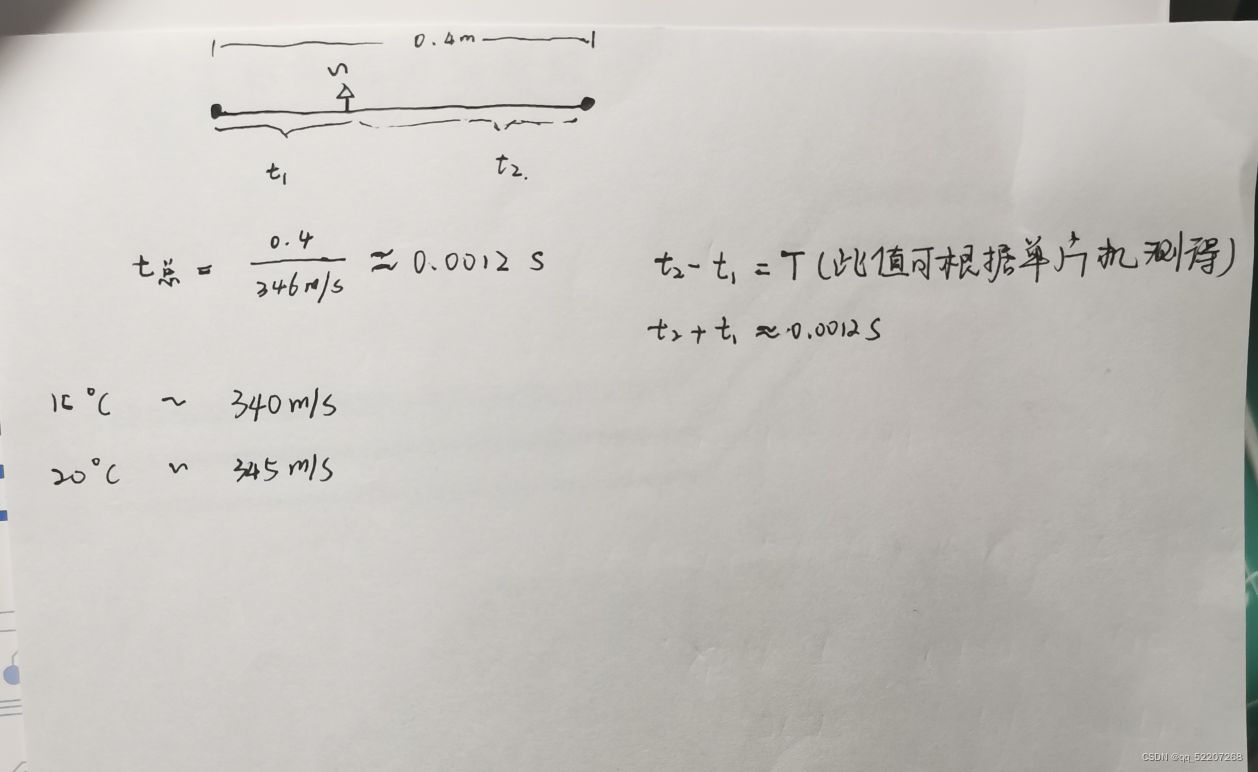 0.4m
S
t₁
t₂.
t总 = 0.4/346m/s ≈ 0.0012 s
t₂ - t₁ = T (此值可根据单片机测得)
t₂ + t₁ ≈ 0.0012 S
15°C ~ 340m/s
20°C ~ 345m/s
CSDN @qq_52207268